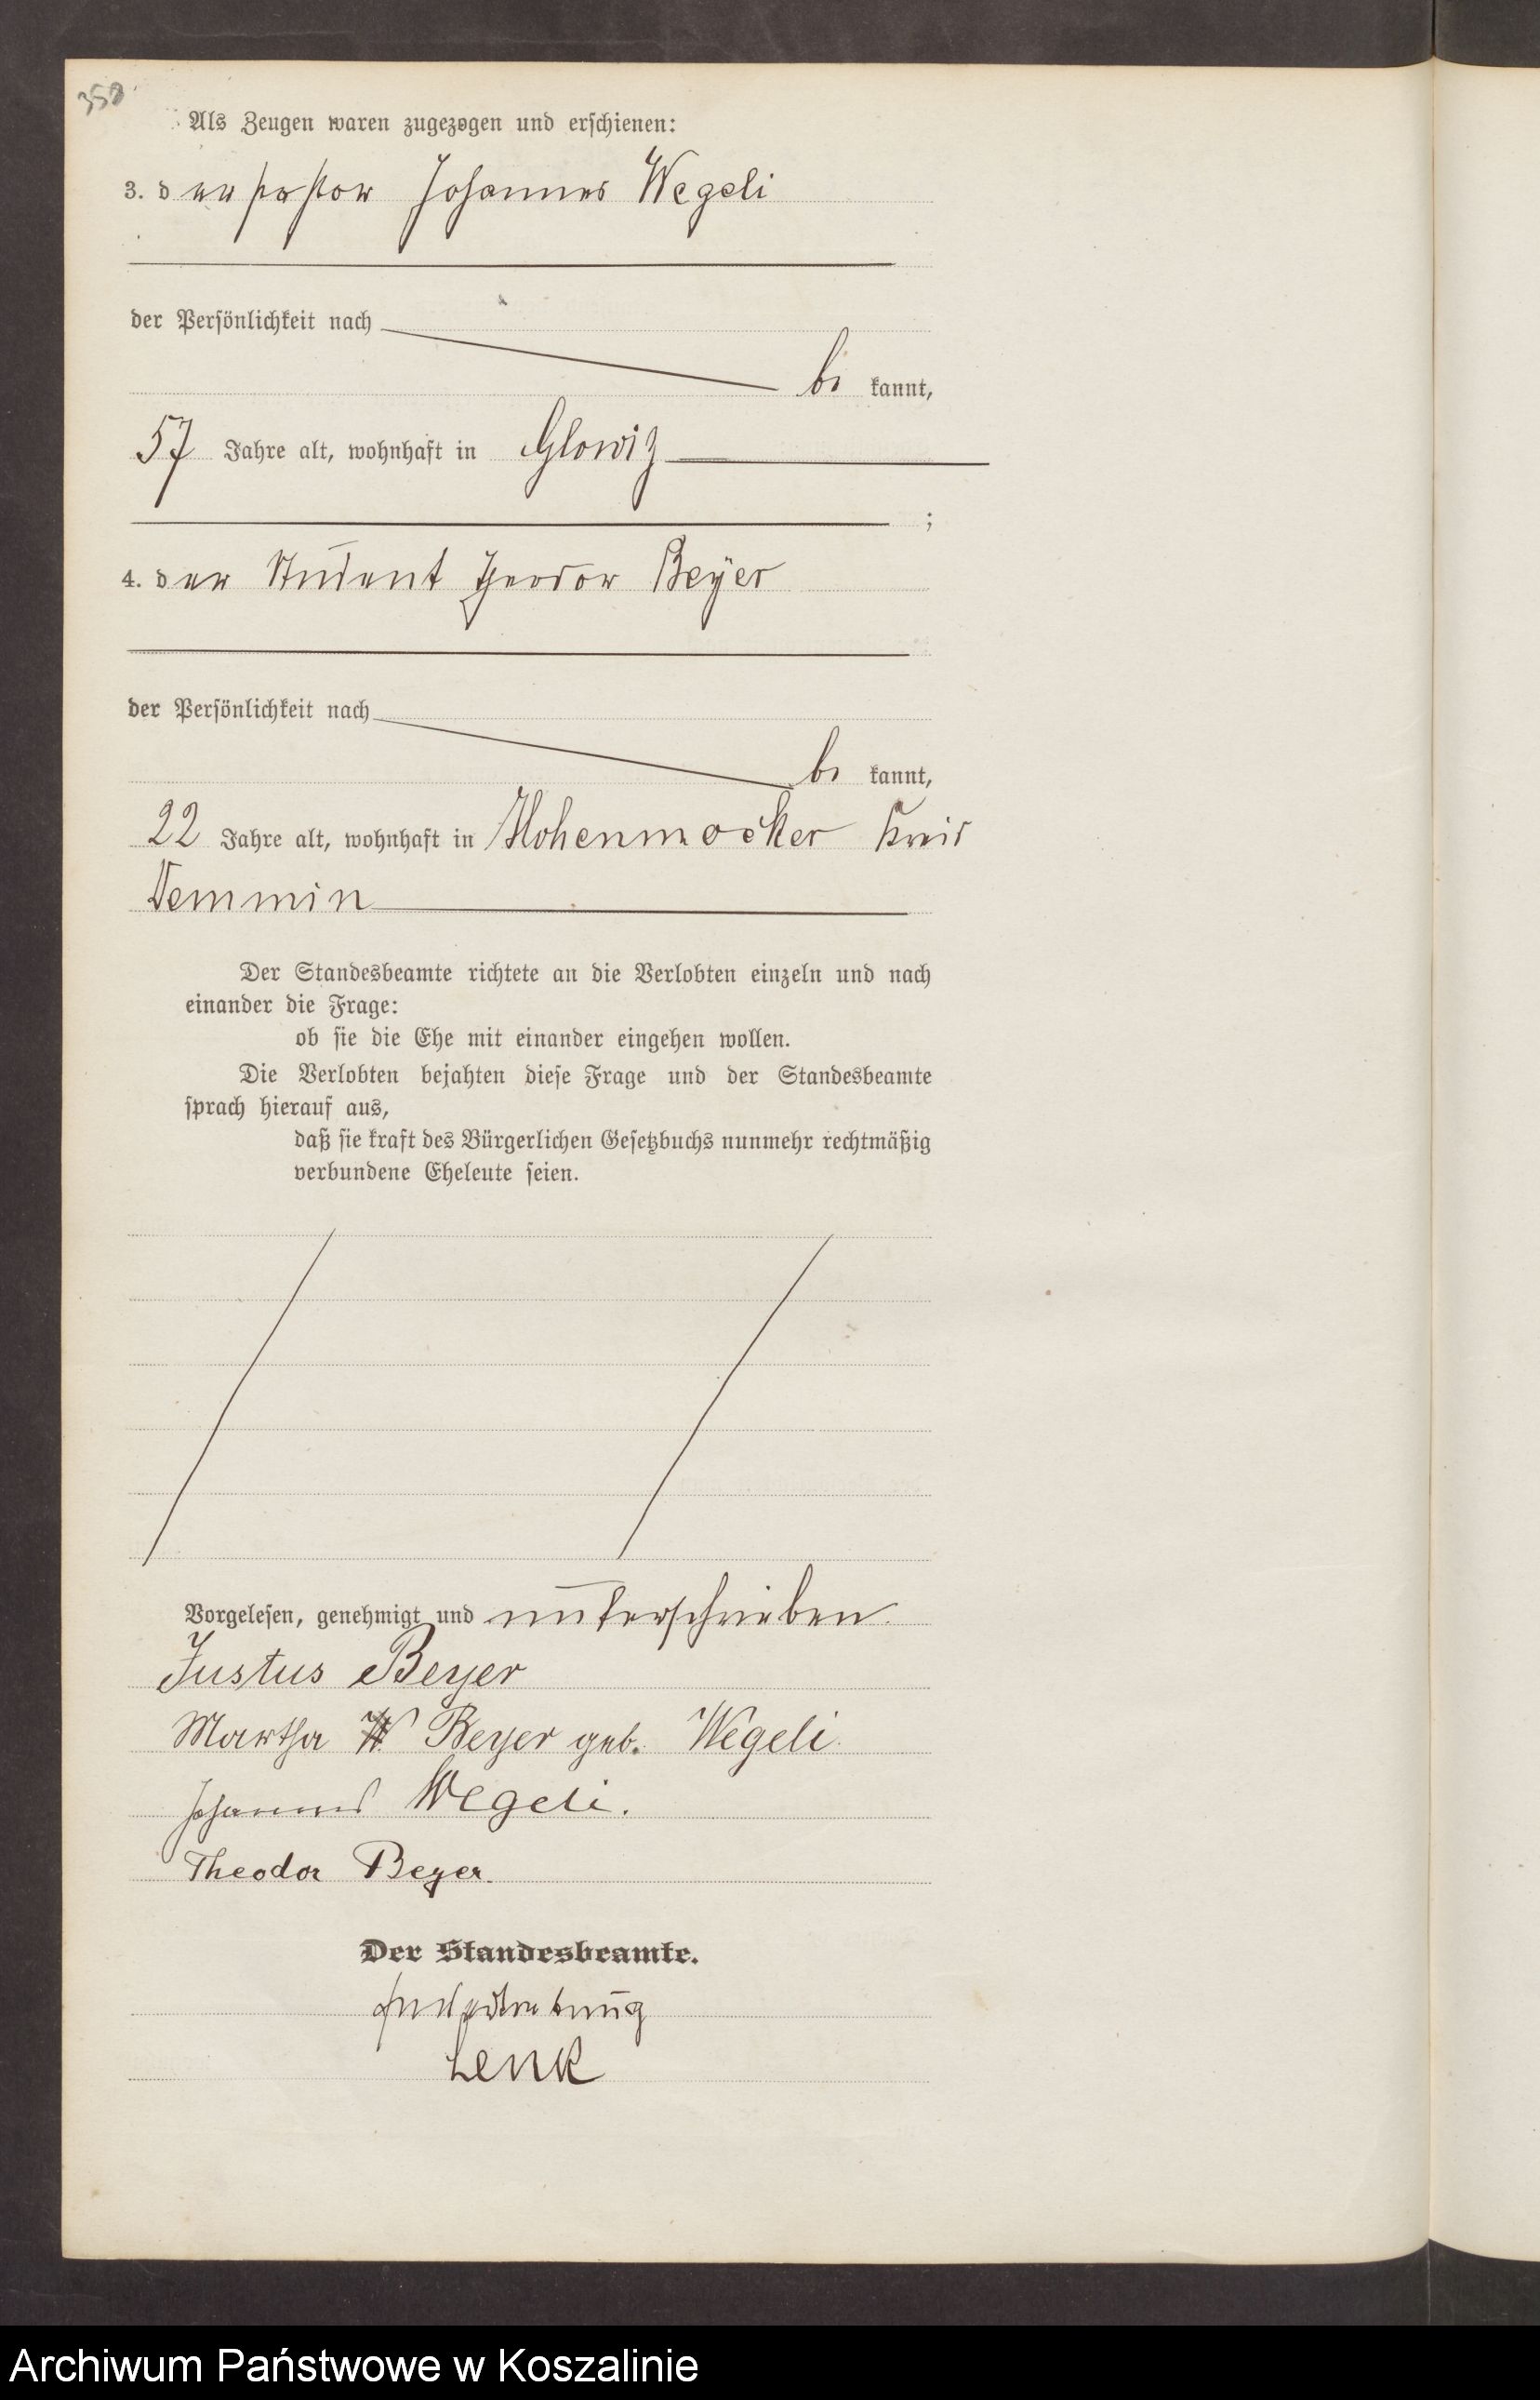 358
Als Zeugen waren zugezogen und erschienen:
3. der Pastor Johannes Wegeli
der Persönlichkeit nach
be kannt,
57 Jahre alt, wohnhaft in Glowitz
;
4. der Student Theodor Beyer
der Persönlichkeit nach
be kannt,
22 Jahre alt, wohnhaft in Hohenmocker Kreis
Demmin
Der Standesbeamte richtete an die Verlobten einzeln und nach
einander die Frage:
ob sie die Ehe mit einander eingehen wollen.
Die Verlobten bejahten diese Frage und der Standesbeamte
sprach hierauf aus,
daß sie kraft des Bürgerlichen Gesetzbuchs nunmehr rechtmäßig
verbundene Eheleute seien.
Vorgelesen, genehmigt und unterschrieben.
Justus Beyer
Martha W Beyer geb. Wegeli.
Johannes Wegeli.
Theodor Beyer.
Der Standesbeamte.
In Vertretung
Lenk
Archiwum Państwowe w Koszalinie